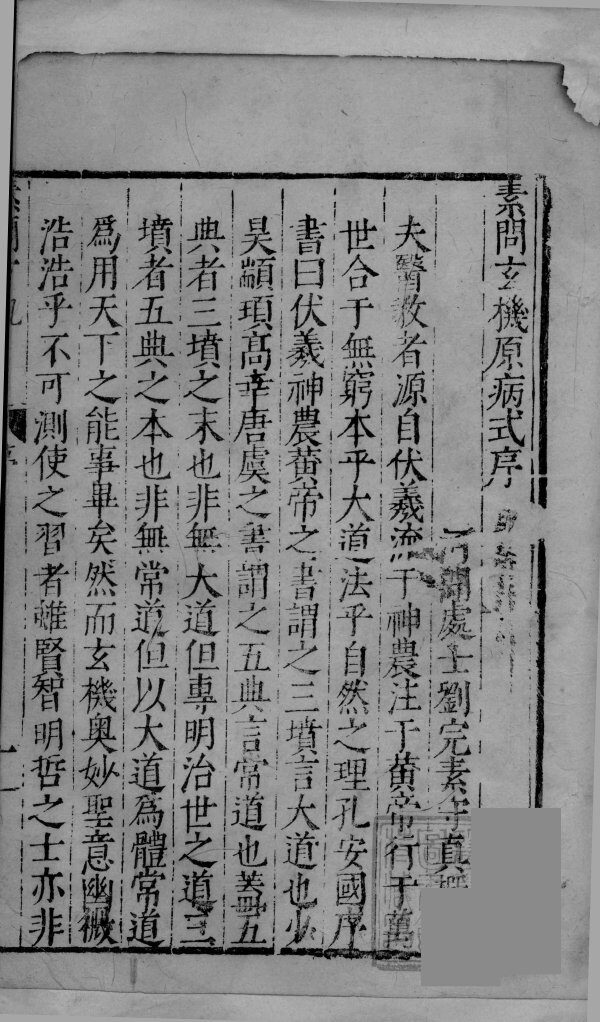 素問玄機原病式序
河間處士劉完素守真
夫醫教者源自伏羲流于神農注于黃帝行于萬
世合于無窮本乎大道法乎自然之理孔安國序
書曰伏羲神農黃帝之書謂之三墳言大道也少
昊顓頊高辛唐虞之書謂之五典言常道也蓋五
典者三墳之末也非無大道但專明治世之道三
墳者五典之本也非無常道但以大道爲體常道
爲用天下之能事畢矣然而玄機奧妙聖意幽微
浩浩乎不可測使之習者雖賢智明哲之士亦非